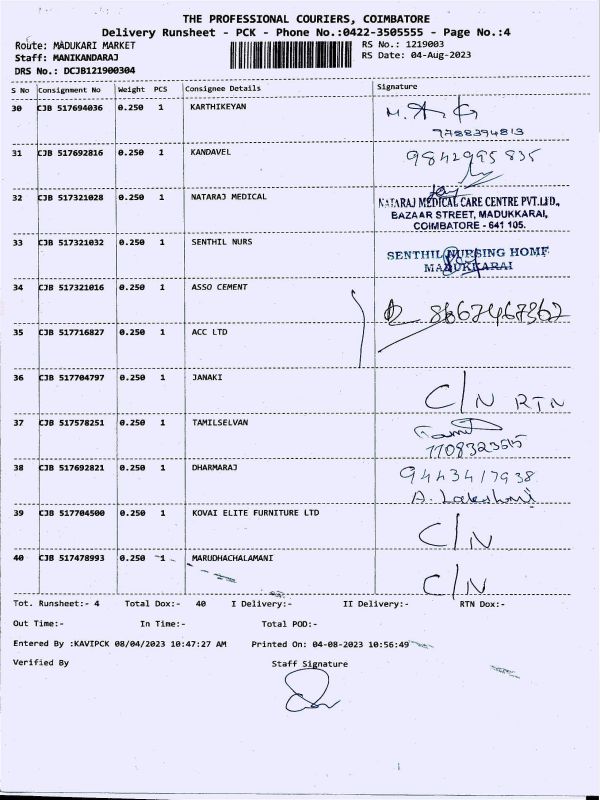 THE PROFESSIONAL COURIERS, COIMBATORE
Delivery Runsheet - PCK - Phone No.:0422-3505555 - Page No.:4
Route: MADUKARI MARKET RS No.: 1219003
Staff: MANIKANDARAJ RS Date: 04-Aug-2023
DRS No.: DCJB121900304
S No Consignment No Weight PCS Consignee Details Signature
30 CJB 517694036 0.250 1 KARTHIKEYAN
7788394813
31 CJB 517692816 0.250 1 KANDAVEL 9842995835
32 CJB 517321028 0.250 1 NATARAJ MEDICAL NATARAJ MEDICAL CARE CENTRE PVT.LTD.,
BAZAAR STREET, MADUKKARAI,
COIMBATORE - 641 105.
33 CJB 517321032 0.250 1 SENTHIL NURS SENTHIL NURSING HOME
MADUKKARAI
34 CJB 517321016 0.250 1 ASSO CEMENT 8667467362
35 CJB 517716827 0.250 1 ACC LTD
36 CJB 517704797 0.250 1 JANAKI C/N RTN
37 CJB 517578251 0.250 1 TAMILSELVAN Tamil
38 CJB 517692821 0.250 1 DHARMARAJ 9443417938
A. Lakshmi
39 CJB 517704500 0.250 1 KOVAI ELITE FURNITURE LTD C/N
40 CJB 517478993 0.250 1 MARUDHACHALAMANI C/N
Tot. Runsheet:- 4 Total Dox:- 40 I Delivery:- II Delivery:- RTN Dox:-
Out Time:- In Time:- Total POD:-
Entered By :KAVIPCK 08/04/2023 10:47:27 AM Printed On: 04-08-2023 10:56:49
Verified By Staff Signature